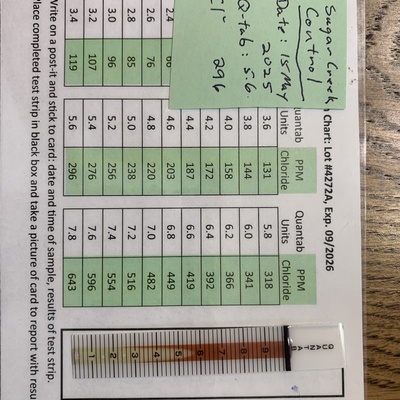 Sugar Creek
Control
Date: 15 May
2025
Q-tab: 5.6
Cl- 296
n Chart: Lot #4272A, Exp. 09/2026
2.4
2.6 76
2.8 85
3.0 96
3.2 107
3.4 119
Quantab Units PPM Chloride
3.6 131
3.8 144
4.0 158
4.2 172
4.4 187
4.6 203
4.8 220
5.0 238
5.2 256
5.4 276
5.6 296
Quantab Units PPM Chloride
5.8 318
6.0 341
6.2 366
6.4 392
6.6 419
6.8 449
7.0 482
7.2 516
7.4 554
7.6 596
7.8 643
QUANTAB
9
8
7
6
5
4
3
2
1
Write on a post-it and stick to card: date and time of sample, results of test strip.
lace completed test strip in black box and take a picture of card to report with resu